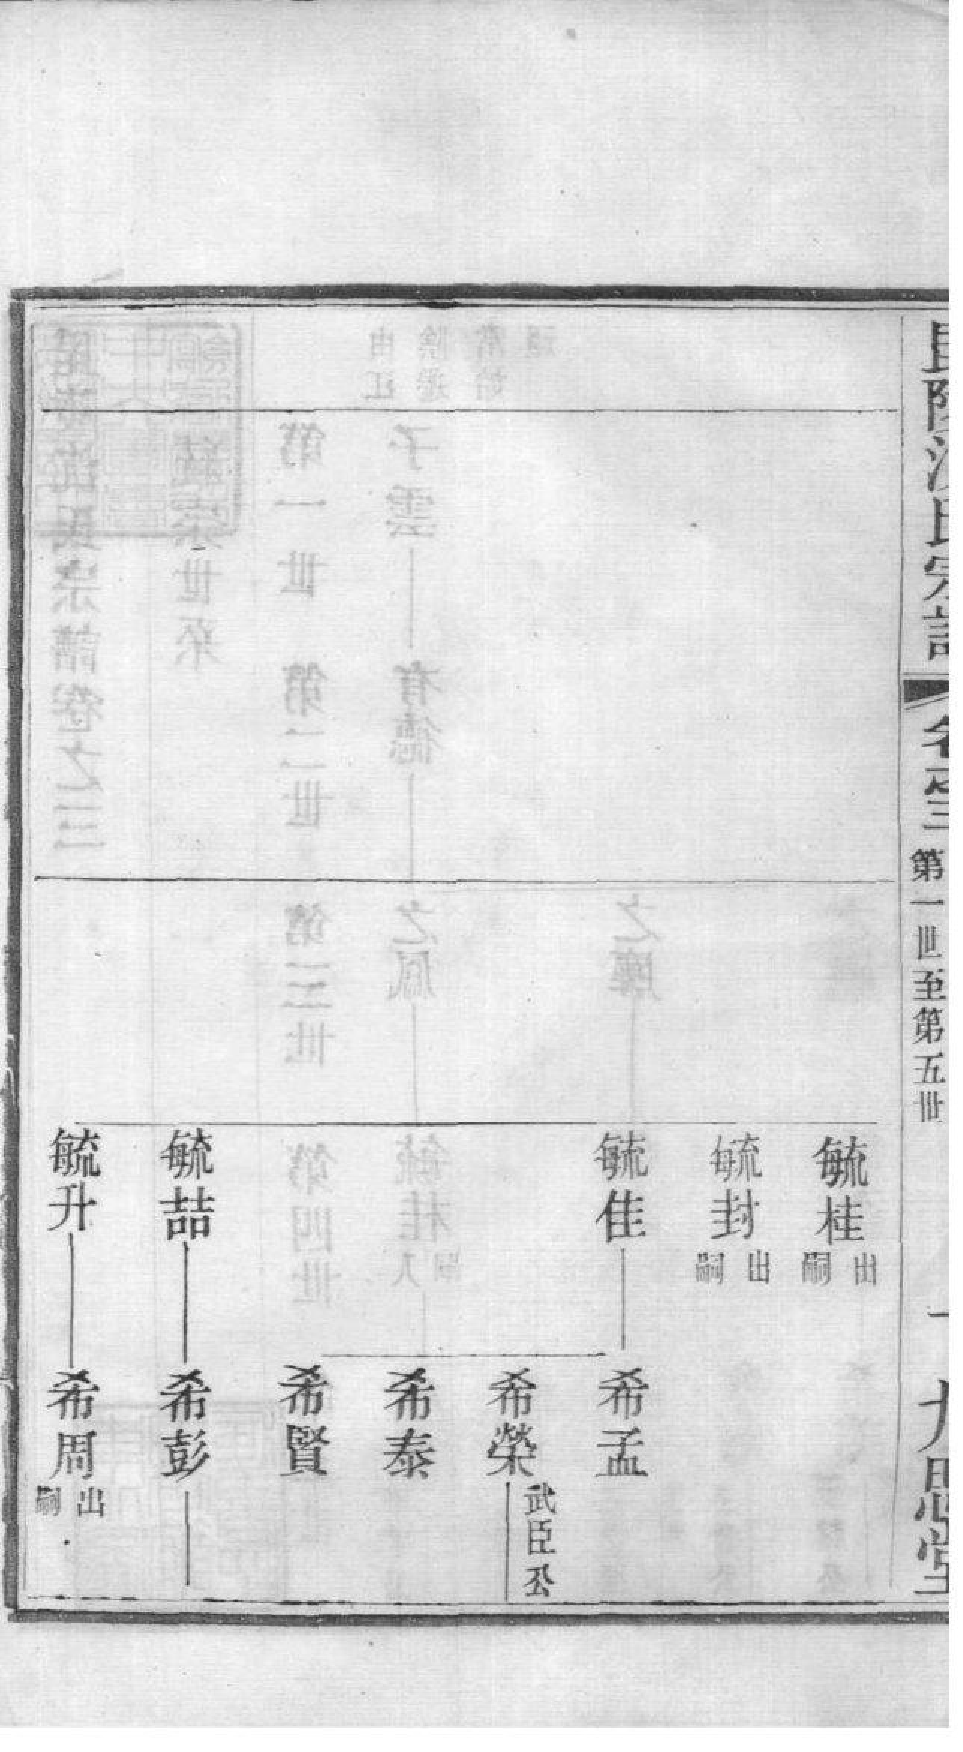 毘陵沈氏宗譜 卷之三 第一世至第五世 一 九思堂
毓桂 出嗣
毓封 出嗣
毓佳
毓喆
毓升
希孟
希榮 武臣公
希泰
希賢
希彭
希周 出嗣